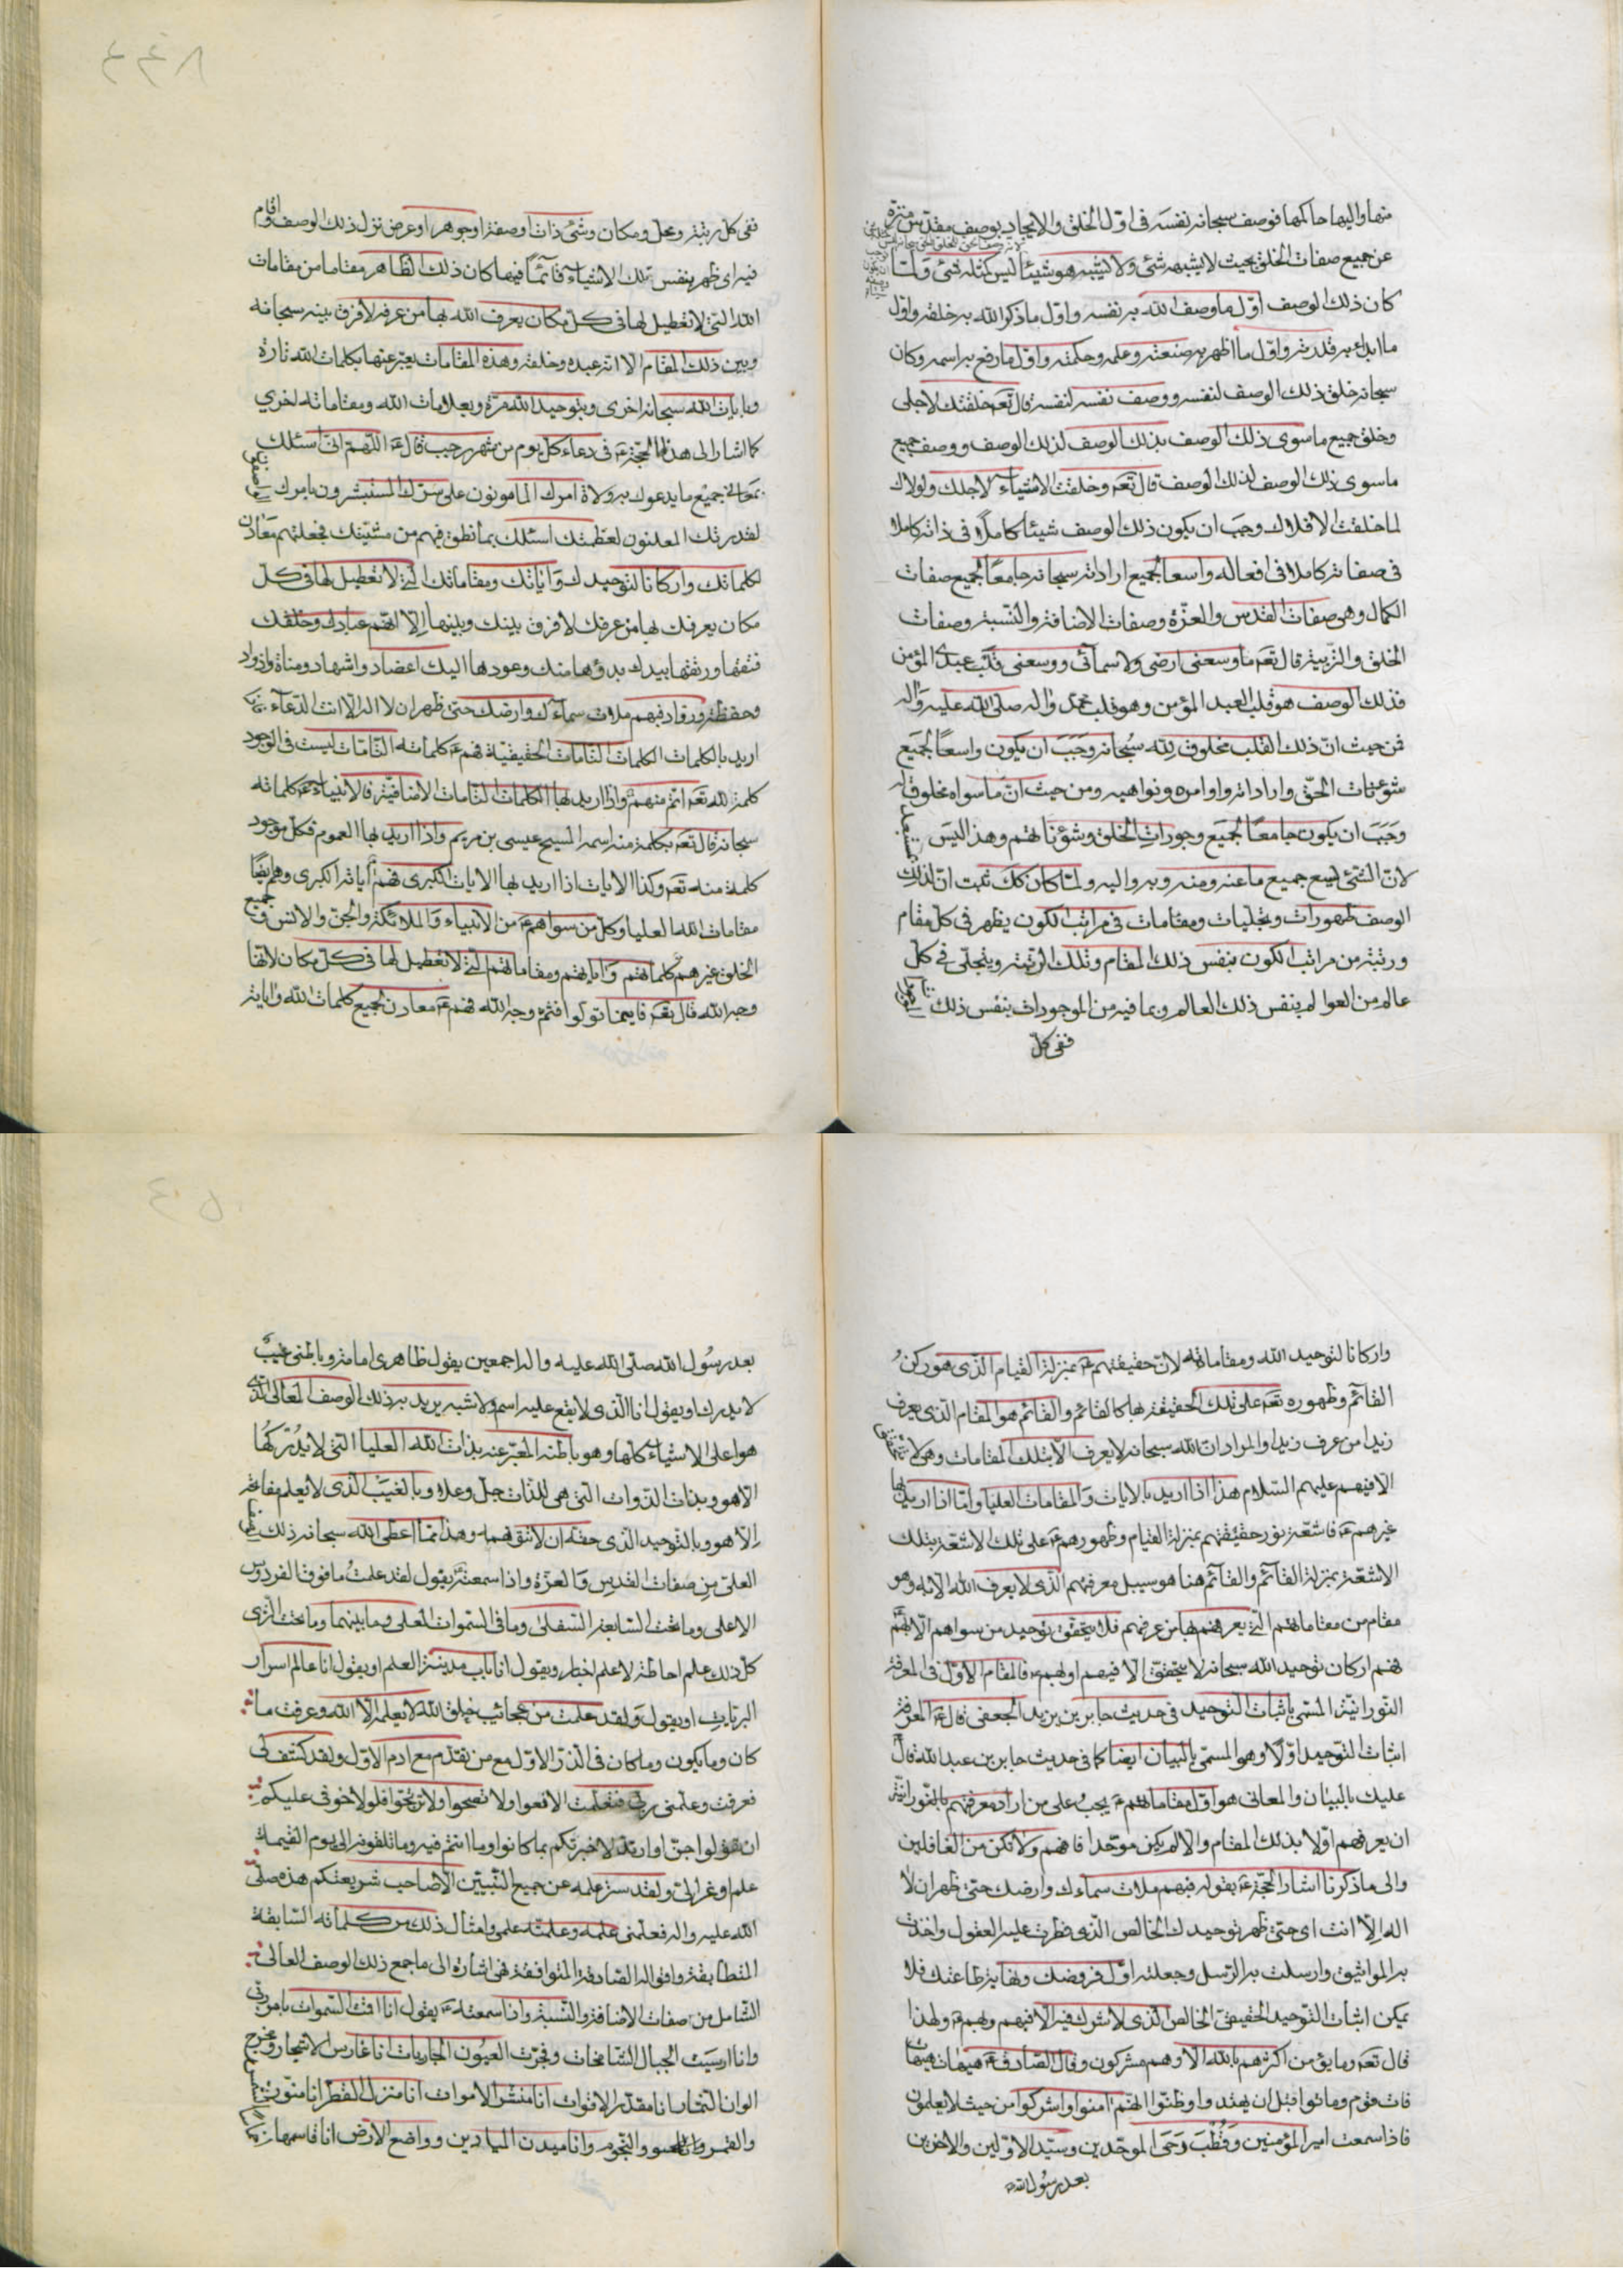 منها واليها حاكمها فوصف سبحانه نفسه فى اوّل الخلق والايجاد بوصف مقدّس منزّه
عن جميع صفات الخلق بحيث لا يشبهه شئ ولا يشبه هو شيئا ليس كمثله شئ ولمّا
كان ذلك الوصف اوّل ما وصف الله به نفسه واوّل ما ذكر الله به خلقه واوّل
ما ابدء به قدرته واوّل ما اظهر به صنعته وعلمه وحكمته واوّل ما رفع به اسمه وكان
سبحانه خلق ذلك الوصف لنفسه ووصف نفسه لنفسه قال تعه خلقتك لاجلى
وخلق جميع ما سوى ذلك الوصف بذلك الوصف لذلك الوصف ووصف جميع
ما سوى ذلك الوصف لذلك الوصف قال تعه وخلقت الاشياء لاجلك ولولاك
لما خلقت الافلاك وجب ان يكون ذلك الوصف شيئا كاملا فى ذاته كاملا
فى صفاته كاملا فى افعاله واسعا لجميع اراداته سبحانه جامعًا لجميع صفات
الكمال وهى صفات القدس والعزّة وصفات الاضافة والنّسبة وصفات
الخلق والتربية قال تعه ما وسعنى ارضى ولا سمائى ووسعنى قلب عبدى المؤمن
فذلك الوصف هو قلب العبد المؤمن وهو قلب محمّد واله صلى الله عليه واله
فمن حيث انّ ذلك القلب مخلوق لله سُبحانه وَجَبَ ان يكون واسعًا لجَميع
شؤنات الحقّ واراداته واوامره ونواهيه ومن حيث انّ ما سواه مخلوق له
وَجَبَ ان يكون جامعًا لجَميع وجودات الخلق وشؤناتهم وهذا ليس بمستبعد
لانّ الشئ يسع جميع ما عنه ومنه وبه واليه ولمّا كان كك ثبت انّ لذلك
الوصف ظهورات وتجليات ومقامات فى مراتب الكون يظهر فى كلّ مقام
ورتبة من مراتب الكون بنفس ذلك المقام وتلك الرّتبة ويتجلّى فى كلّ
عالم من العوالم بنفس ذلك العالم وبما فيه من الموجودات بنفس ذلك
ففى كلّ
ففى كلّ رتبة ومحلّ ومكان وشئ ذات او صفة او جوهر او عرض نزل ذلك الوصف واقام
فيه اى ظهر بنفس تلك الاشياء قائمًا فيها كان ذلك الظّاهر مقاما من مقامات
الله الّتى لا تعطيل لها فى كلّ مكان يعرف الله بها من عرفه لا فرق بينه سبحانه
وبين ذلك المقام الّا انّه عبده وخلقه وهذه المقامات يعبّر عنها بكلمات الله تارة
وبايات الله سبحانه اخرى وبتوحيد الله مرّة وبعلامات الله ومقاماته اخرى
كما اشار الى هذا الحجّة عه فى دعاء كلّ يوم من شهر رجب قال عه اللّهم انّى اسئلك
بمعانى جميع ما يدعوك به ولاة امرك المامونون على سرّك المستبشرون بامرك
لقدرتك المعلنون لعظمتك اسئلك بما نطق فيهم من مشيّتك فجعلتهم معادن
لكلماتك واركانا لتوحيدك وَاياتك ومقاماتك الّتى لا تعطيل لها فى كلّ
مكان يعرفك بها من عرفك لا فرق بينك وبينها اِلّا انّهم عبادك وخلقك
فتقها ورتقها بيدك بدؤها منك وعودها اليك اعضاد واشهاد ومناة واذواد
وحفظة وروّاد فبهم ملات سماءك وارضك حتى ظهر ان لا اله الا انت الدّعاء
اريد بالكلمات الكلمات التّامات الحقيقيّة فهم عه كلماته التّامّات ليست فى الوجود
كلمة لله تعه اتمّ منهم وان اريد بها الكلمات التّامات الاضافيّة فالانبياء عه كلماته
سبحانه قال تعه بكلمة منه اسمه المسيح عيسى بن مريم واذا اريد بها العموم فكلّ موجود
كلمة منه تعه وكذا الايات اذا اريد بها الايات الكبرى فهم اياته الكبرى وهم ايضًا
مقامات الله العليا وكلّ من سواهم عه من الانبياء والملائكة والجنّ والانس فى جميع
الخلق غيرهم كلماتهم وَاياتهم ومقاماتهم الّتى لا تعطيل لها فى كلّ مكان لانّها
وجه الله قال تعه فاينما تولّوا فثمّ وجه الله فهم عه معادن لجميع كلمات الله واياته
واركانا لتوحيد الله ومقاماته لانّ حقيقتهم عه بمنزلة القيام الّذى هو ركنُ
القائم وظهوره تعه على تلك الحقيقة بها كالقائم والقائم هو المقام الّذى يعرف
زيدا من عرف زيدا والمراد انّ الله سبحانه لا يعرف الّا بتلك المقامات وهى لا
الا فيهم عليهم السّلام هذا اذا اريد بالايات وَالمقامات العليا وامّا اذا اريد بها
غيرهم عه فاشعّة نور حقيقتهم بمنزلة القيام وظهورهم عه على تلك الاشعّة بتلك
الاشعّة بمنزلة القائم والقائم هنا هو سبيل معرفتهم الّذى لا يعرف الله الّا به وهو
مقام من مقاماتهم الّتى يعرفهم بها من عرفهم فلا يتحقّق توحيد من سواهم الّا بهم
فهم اركان توحيد الله سبحانه لا يتحقّق الّا فيهم او بهم عه فالمقام الاوّل فى المعرفة
النّورانيّة المسمّى باثبات التوحيد فى حديث جابر بن يزيد الجعفى قال عه المعرفة
اثبات التوحيد اوّلا وهو المسمّى بالبيان ايضا كما فى حديث جابر بن عبد الله قال
عليك بالبيان والمعانى هو اوّل مقاماتهم عه يجبُ على من اراد معرفتهم بالنّورانيّة
ان يعرفهم اوّلا بذلك المقام والا لم يكن موحّدا فافهم ولا تكن من الغافلين
والى ما ذكرنا اشار الحجّة عه بقوله فبهم ملات سماءك وارضك حتى ظهر ان لا
اله الا انت اى حتى ظهر توحيدك الخالص الّذى فطرت عليه العقول واخذت
به المواثيق وارسلت به الرّسل وجعلته اوّل فروضك ونهاية طاعتك فلا
يمكن اثبات التّوحيد الحقيقى الخالص الّذى لا شرك فيه الّا فيهم وبهم عه ولهذا
قال تعه وما يؤمن اكثرهم بالله الّا وهم مشركون وقال الصّادق عه هيهات هيهات
فات قوم وماتوا قبل ان يهتدوا وظنّوا انّهم امنوا واشركوا من حيث لا يعلمون
فاذا سمعت امير المؤمنين وقُطْبَ رَحَى الموحّدين وسيّد الاوّلين والاخرين
بعد رسُول الله
بعد رسُول الله صلى الله عليه واله اجمعين يقول ظاهرى امامة وباطنى غيبٌ
لا يدرك ويقول انا الّذى لا يقع عليه اسم ولا شبه يريد به ذلك الوصف المعالى الّذى
هو اعلى الاشياء كلّها وهو باطنه المعبّر عنه بذات الله العليا الّتى لا يدُركهَا
الّا هو وبذات الذّوات الّتى هى للذّات جلّ وعلا وبالغيب الّذى لا يعلم مفاتحه
اِلّا هو وبالتوحيد الذى حقّه ان لا تتوهّمه وهذا ممّا اعطى الله سبحانه ذلك
العلىّ من صفات القدس وَالعزّة واذا سمعته يقول لقد علمتُ ما فوق الفردوس
الاعلى وما تحت السّابعة السّفلى وما فى السّموات العلى وما بينهما وما تحت الثّرى
كل ذلك علم احاطة لا علم اخبار ويقول انا باب مدينة العلم او يقول انا عالم اسرار
البريّات او يقول وَلقد علمت من عجائب خلق الله لا يعلمه الّا الله وعرفت ما
كان وما يكون وما كان فى الذّرّ الاوّل مع من تقدّم مع ادم الاوّل ولقد كشف لى
فعرفت وعلّمنى ربّى فتعلّمت الا فعوا ولا تضجّوا ولا ترتجّوا فلولا خوفى عليكم
ان تقولوا جنّ او ارتدّ لاخبرتكم بما كانوا وما انتم فيه وما تلقونه الى يوم القيمة
علم اوعز الىّ ولقد ستر علمه عن جميع النّبيّين الّا صاحب شريعتكم هذه صلّى
الله عليه واله فعلّمنى علمه وعلّمته علمى وامثال ذلك من كلماته السّابقة
المتطابقة واقواله الصّادقة المتوافقة فهى اشارة الى ما جمع ذلك الوصف العالى
الشّامل من صفات الاضافة والنّسبة واذا سمعته عه يقول انا اقمت السّموات بامر ربّى
وانا ارسيت الجبال الشّامخات وفجّرت العيون الجاريات انا غارس الاشجار ومخرج
الوان الثّمار انا مقدّر الاقوات انا منشر الاموات انا منزل القطر انا منوّر الشمس
والقمر والنّجوم وانا ميدن الميادين وواضع الارض انا قاسمها